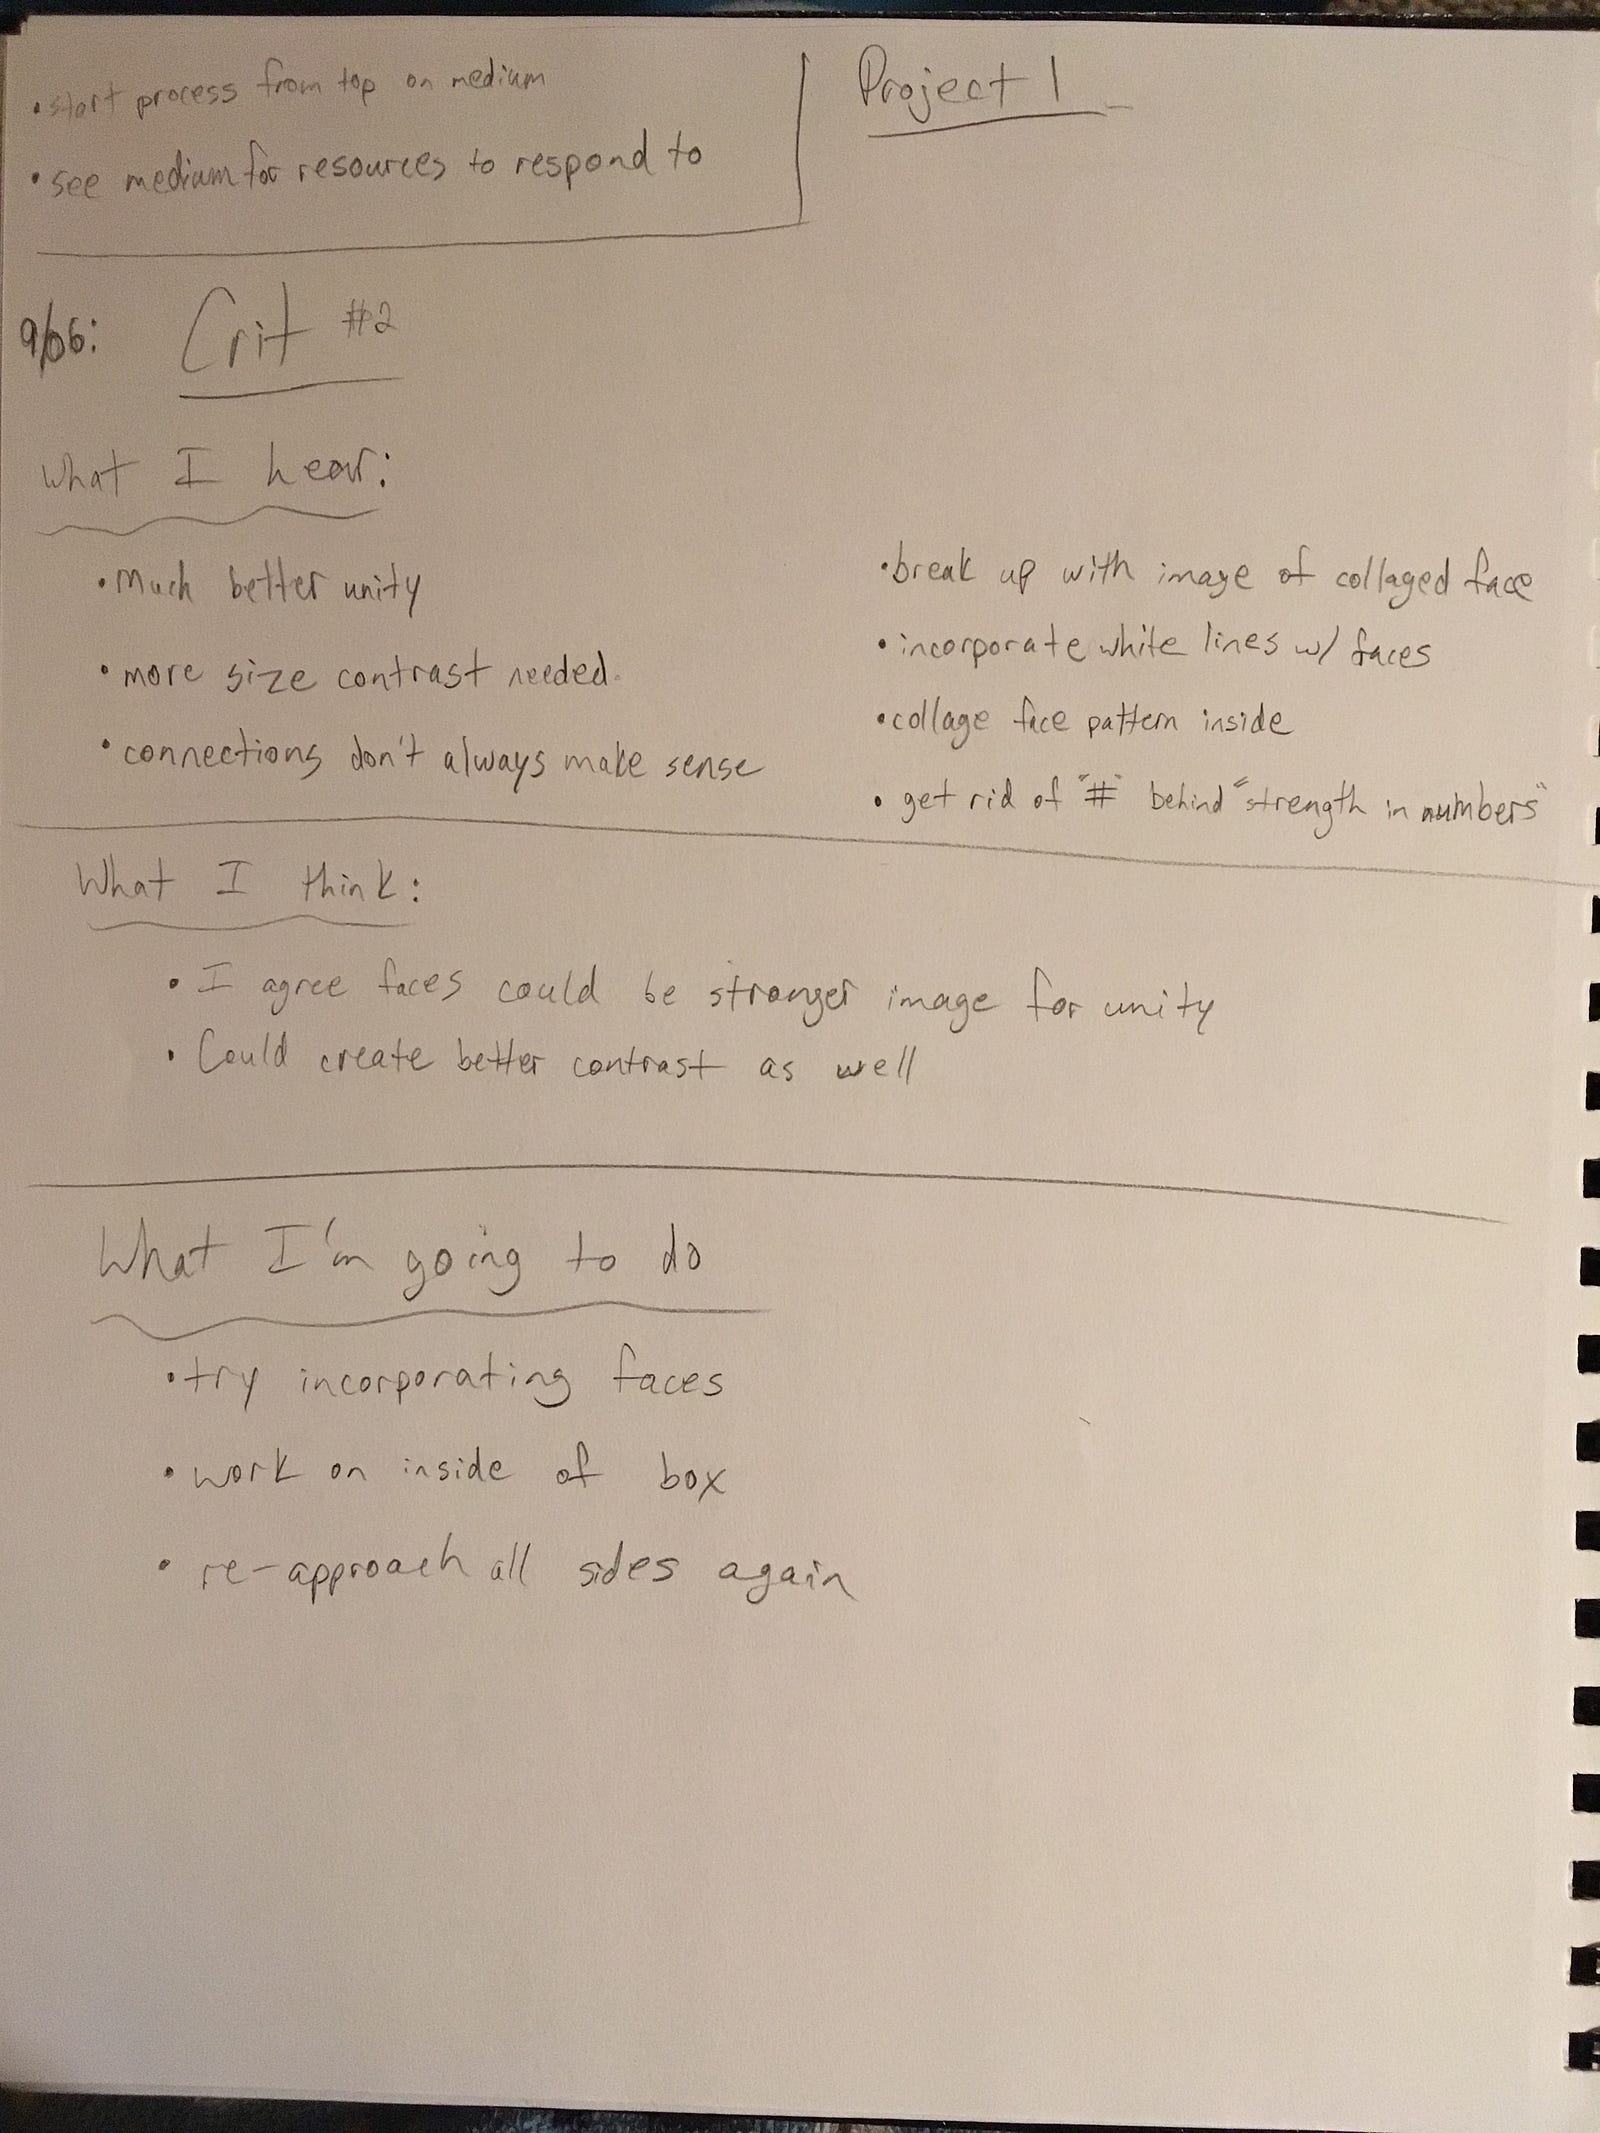 •start process from top on medium
•see medium for resources to respond to
Project 1
9/06: Crit #2
What I hear:
•Much better unity
•more size contrast needed.
•connections don't always make sense
•break up with image of collaged face
•incorporate white lines w/ faces
•collage face pattern inside
•get rid of "#" behind "strength in numbers"
What I think:
•I agree faces could be stronger image for unity
•Could create better contrast as well
What I'm going to do
•try incorporating faces
•work on inside of box
•re-approach all sides again